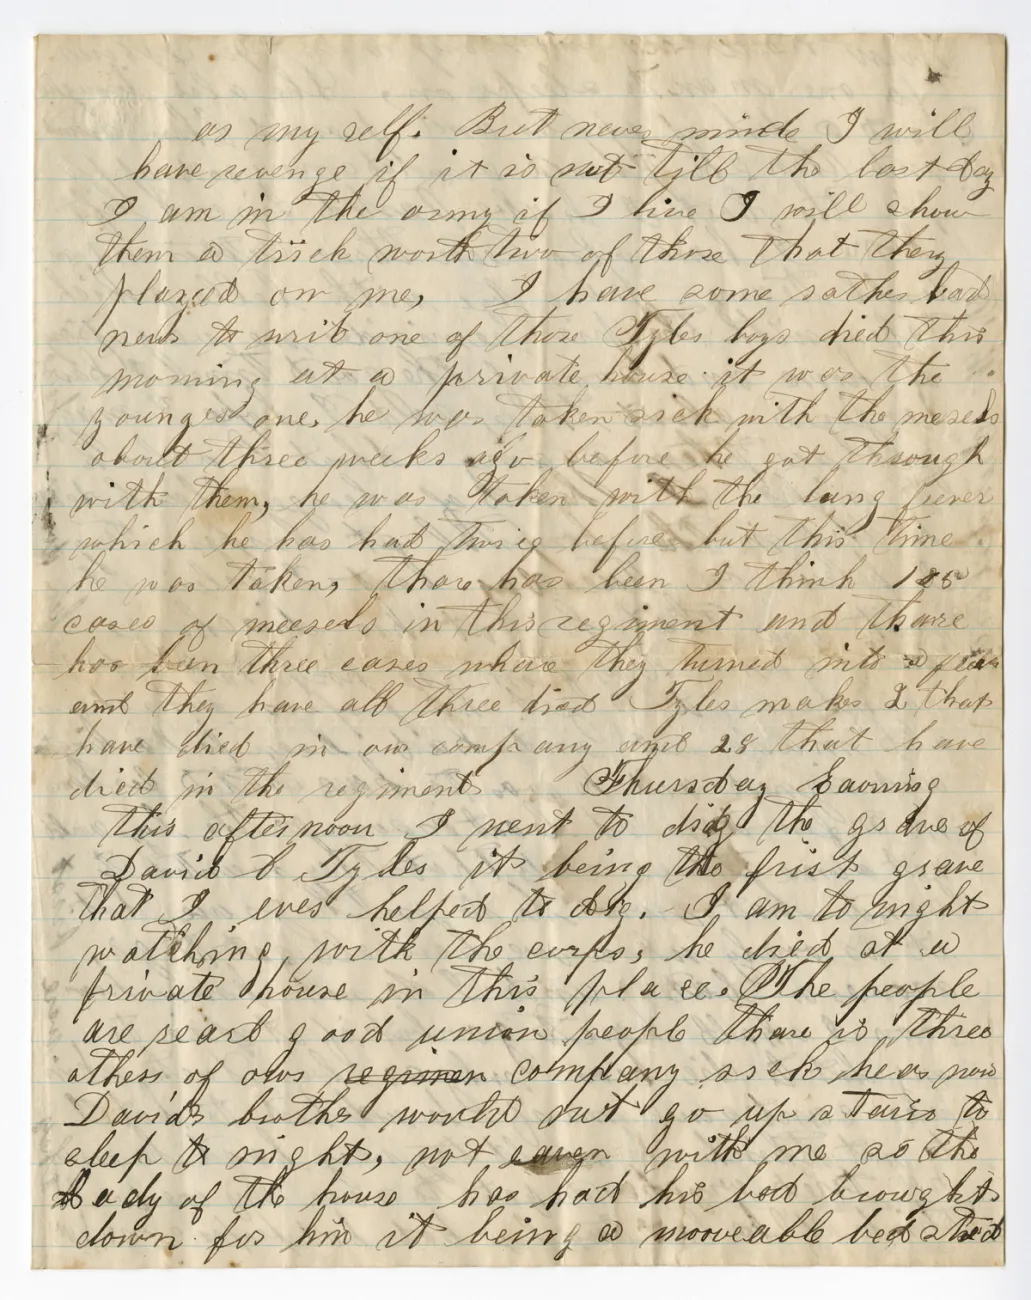 as my self. But never minde I will
have revenge if it is not till the last day
I am in the army if I live I will show
them a trick worth two of those that they
played on me, I have some rather bad
news to write one of those Tyles boys died this
morning at a private house. it was the
youngest one, he was taken sick with the mesels
about three weeks ago before he got through
with them, he was taken with the lung fever
which he has had twice before but this time
he was taken, thare has been I think
cases of meesels in this regiment and thare
has been three cases whare they turned into a
and they have all three died Tyles makes 2 that
have died in our company and 28 that have
died in the regiment Thursday Eavning
this afternoon I went to dig the grave of
David Tyles it being the frist grave
that I ever helped to dig. I am to night
watching with the corps, he died at a
private house in this place. The people
are good union people thare is three
others of our regimen company sick hear now
Davids brother would not go up stairs to
sleep to night, not eaven with me so the
Lady of the house has had his bed brought
down for him it being a mooveable bed sted